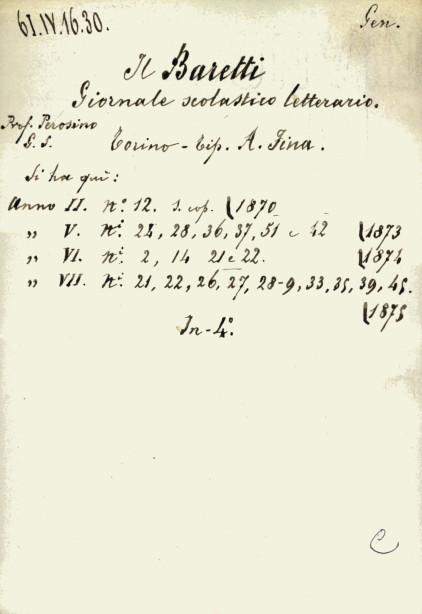 61.IV.16.30.
Gen.
Il Baretti
Giornale scolastico letterario.
Prof. Perosino
G. S.
Torino - Tip. A. Fina.
Si ha qui:
Anno II. n.º 12. s. cop. (1870
„ V. n.i 24, 28, 36, 37, 51 e 42 (1873
„ VI. n.i 2, 14 21 e 22. (1874
„ VII. n.i 21, 22, 26, 27, 28-9, 33, 35, 39, 45.
(1875
In-4.º
C